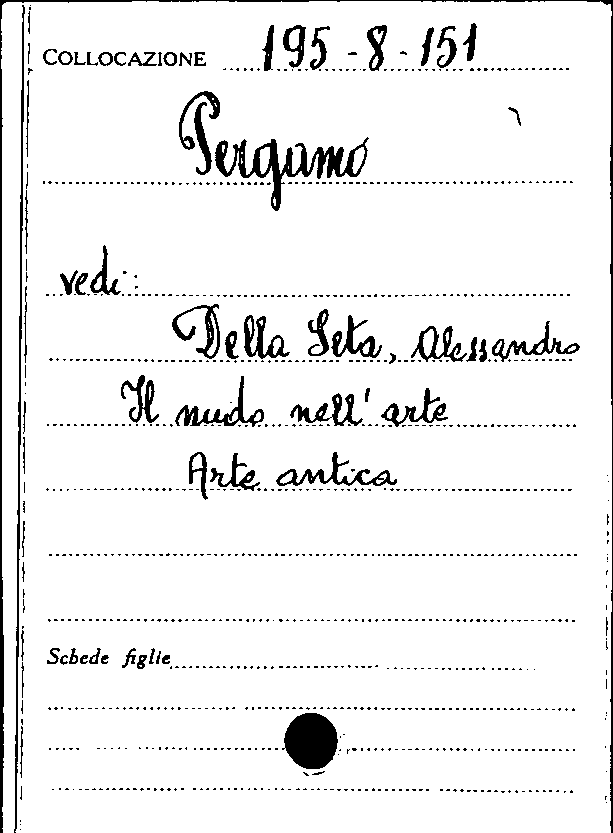 COLLOCAZIONE 195-8-151
Pergamo
vedi:
Della Seta, Alessandro
Il nudo nell'arte
Arte antica
Schede figlie